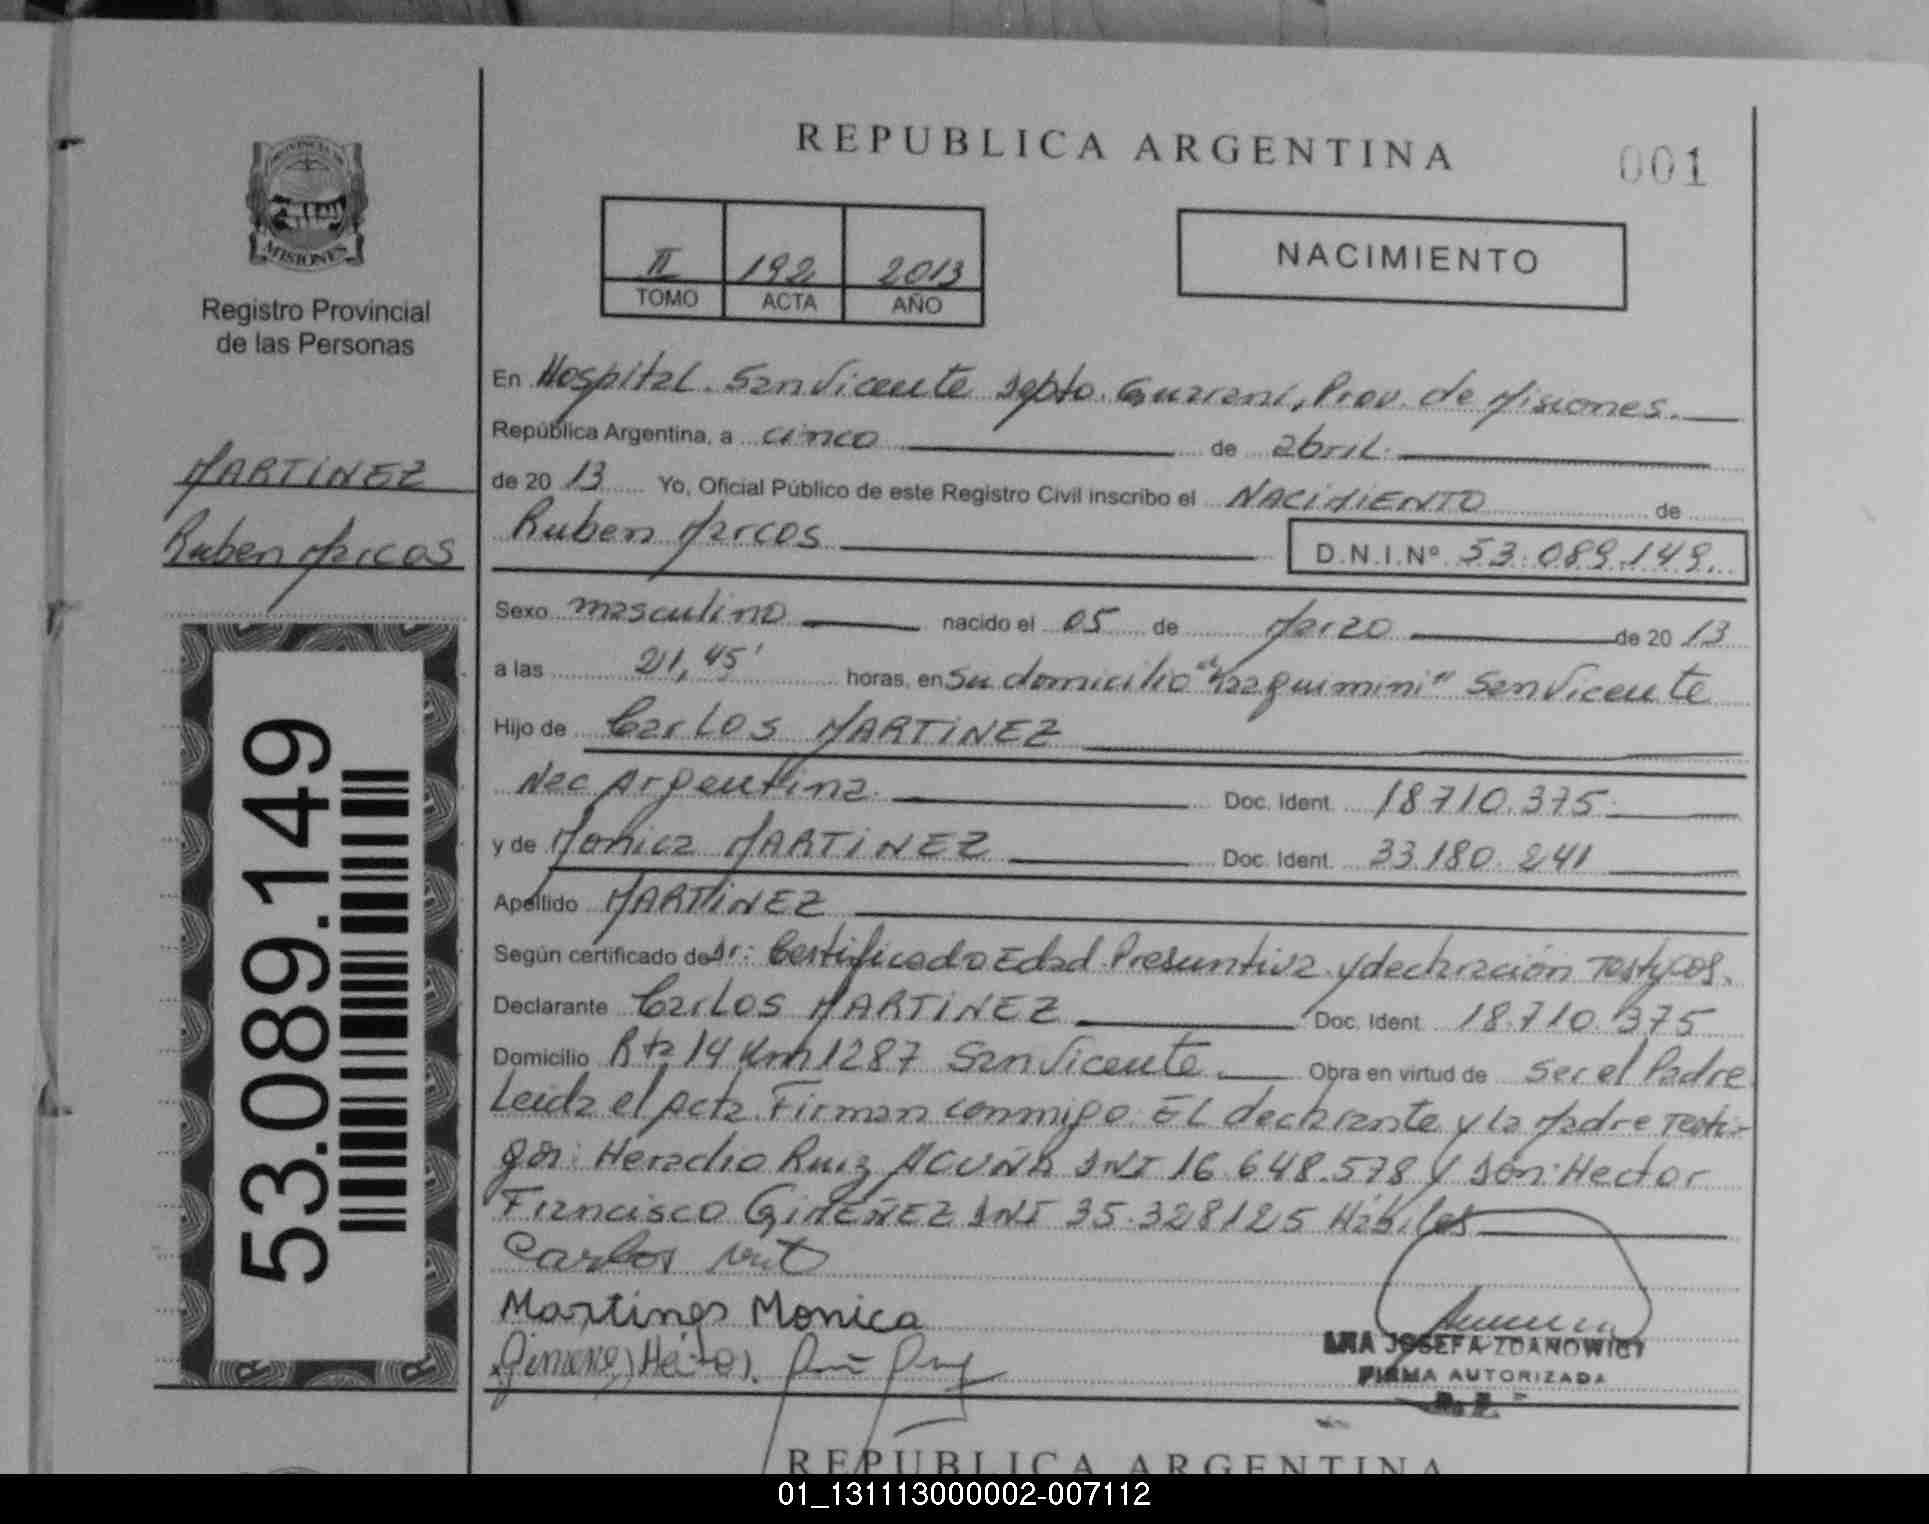 REPUBLICA ARGENTINA
001
PROVINCIA DE
MISIONES
Registro Provincial
de las Personas
II 192 2013
TOMO ACTA AÑO
NACIMIENTO
MARTINEZ
Ruben Marcos
53.089.149
En Hospital San Vicente Depto. Guarani, Prov. de Misiones.
República Argentina, a cinco de abril
de 20 13 Yo, Oficial Público de este Registro Civil inscribo el NACIMIENTO de
Ruben Marcos D.N.I.Nº 53.089.149
Sexo masculino nacido el 05 de Marzo de 20 13
a las 21,45' horas, en Su domicilio San Vicente
Hijo de Carlos MARTINEZ
Nac Argentina Doc. Ident. 18710.375
y de Monica MARTINEZ Doc. Ident. 33.180.241
Apellido MARTINEZ
Según certificado de Dr: Certificado Edad Presuntiva y declaración Testigos.
Declarante Carlos MARTINEZ Doc. Ident. 18.710.375
Domicilio Rta 14 Km 1287 San Vicente Obra en virtud de Ser el Padre
Leida el Acta Firman conmigo El declarante y la Madre Testi-
gos: Heraclio Ruiz ACUÑA DNI 16.648.578 y Don: Hector
Francisco GIMENEZ DNI 35.328125 Hábiles
Carlos
Martines Monica
Gimenez Hector
ANA JOSEFA ZDANOWICZ
FIRMA AUTORIZADA
REPUBLICA ARGENTINA
01_131113000002-007112